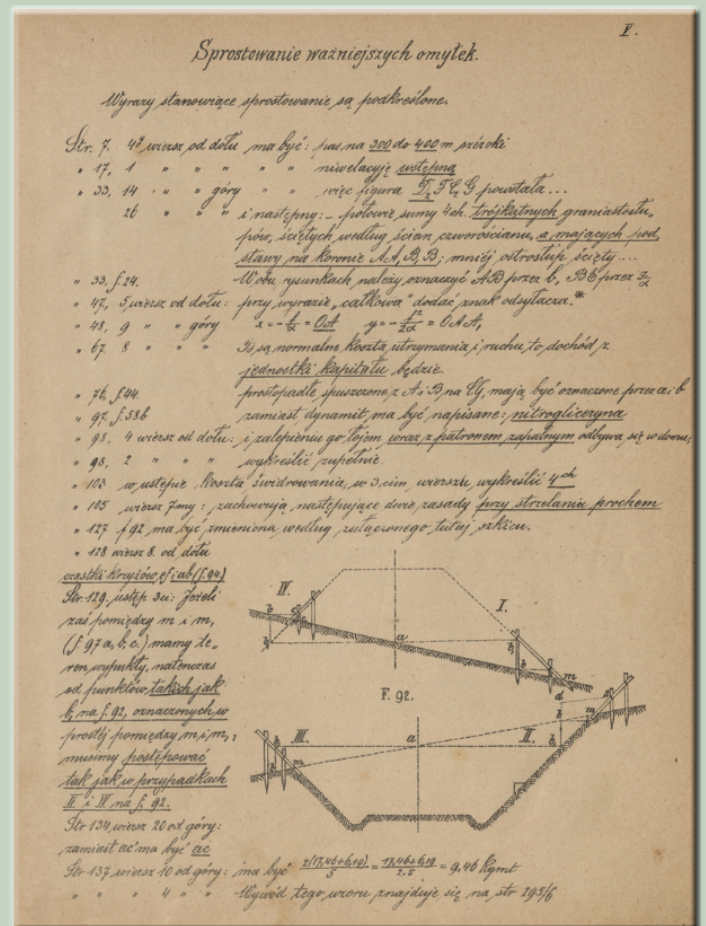 V.
Sprostowanie ważniejszych omyłek.
Wyrazy stanowiące sprostowanie są podkreślone.
Str. 7. 4ty wiersz od dołu ma być: pas na 300 do 400 m széroki
" 17, 1 " " " " " niwelacyję wstępną
" 33, 14 " " góry " " więc figura powstała...
26 " " " i następny: - połowie sumy 4ch. trójkątnych graniastosłu„
pów, ściętych według ścian czworościanu, a mających pod„
stawy na koronie A A, B, B; mniéj ostrosłup ścięty...
" 33, f. 24. W obu rysunkach należy oznaczyć AB przez b,
" 47, 5 wiersz od dołu: przy wyrazie „całkowa" dodać znak odsyłacza.*
" 48, 9 " " góry
" 67. 8 " " " są normalne koszta utrzymania i ruchu, to dochód z
jednostki kapitału będzie
" 76, f. 44. prostopadłe, spuszczone z A i B na CG, mają być oznaczone przez a i b
" 97, f. 58b zamiast dynamit, ma być napisane: nitrogliceryna
" 98, 4 wiersz od dołu: i zalepieniu go łojem wraz z patronem zapalnym odbywa się w domu;
" 98, 2 " " " wykreślić zupełnie.
" 103 w ustępie Koszta świdrowania, w 3.cim wierszu, wykreślić 4ch
" 105 wiersz 7my: zachowują następujące dwie zasady przy strzelaniu prochem
" 127 f 92 ma być zmieniona według załączonego tutaj szkicu.
" 128 wiersz 8. od dołu
cząstki krzyżów, ef i ab (f. 94)
Str. 129, ustęp 3ci: Jeżeli
zaś pomiędzy m i m,
(f 97 a, b, c.) mamy te„
ren wypukły, natenczas
od punktów, takich jak
b, na f. 92, oznaczonych w
prostéj pomiędzy m i m,,
musimy postępować
tak jak w przypadkach
II i IV na f. 92.
Str 134 wiersz 20 od góry:
zamiast ac' ma być ac
Str 137 wiersz 10 od góry: ma być 2(17,46+6,19)/5 = 17,46+6,19/2,5 = 9,46 Kgmt
" " " 4 " " Wywód tego wzoru znajduje się na str 295/6
IV.
I.
a
b
m
F. 92.
III.
a
II.
d
b
m